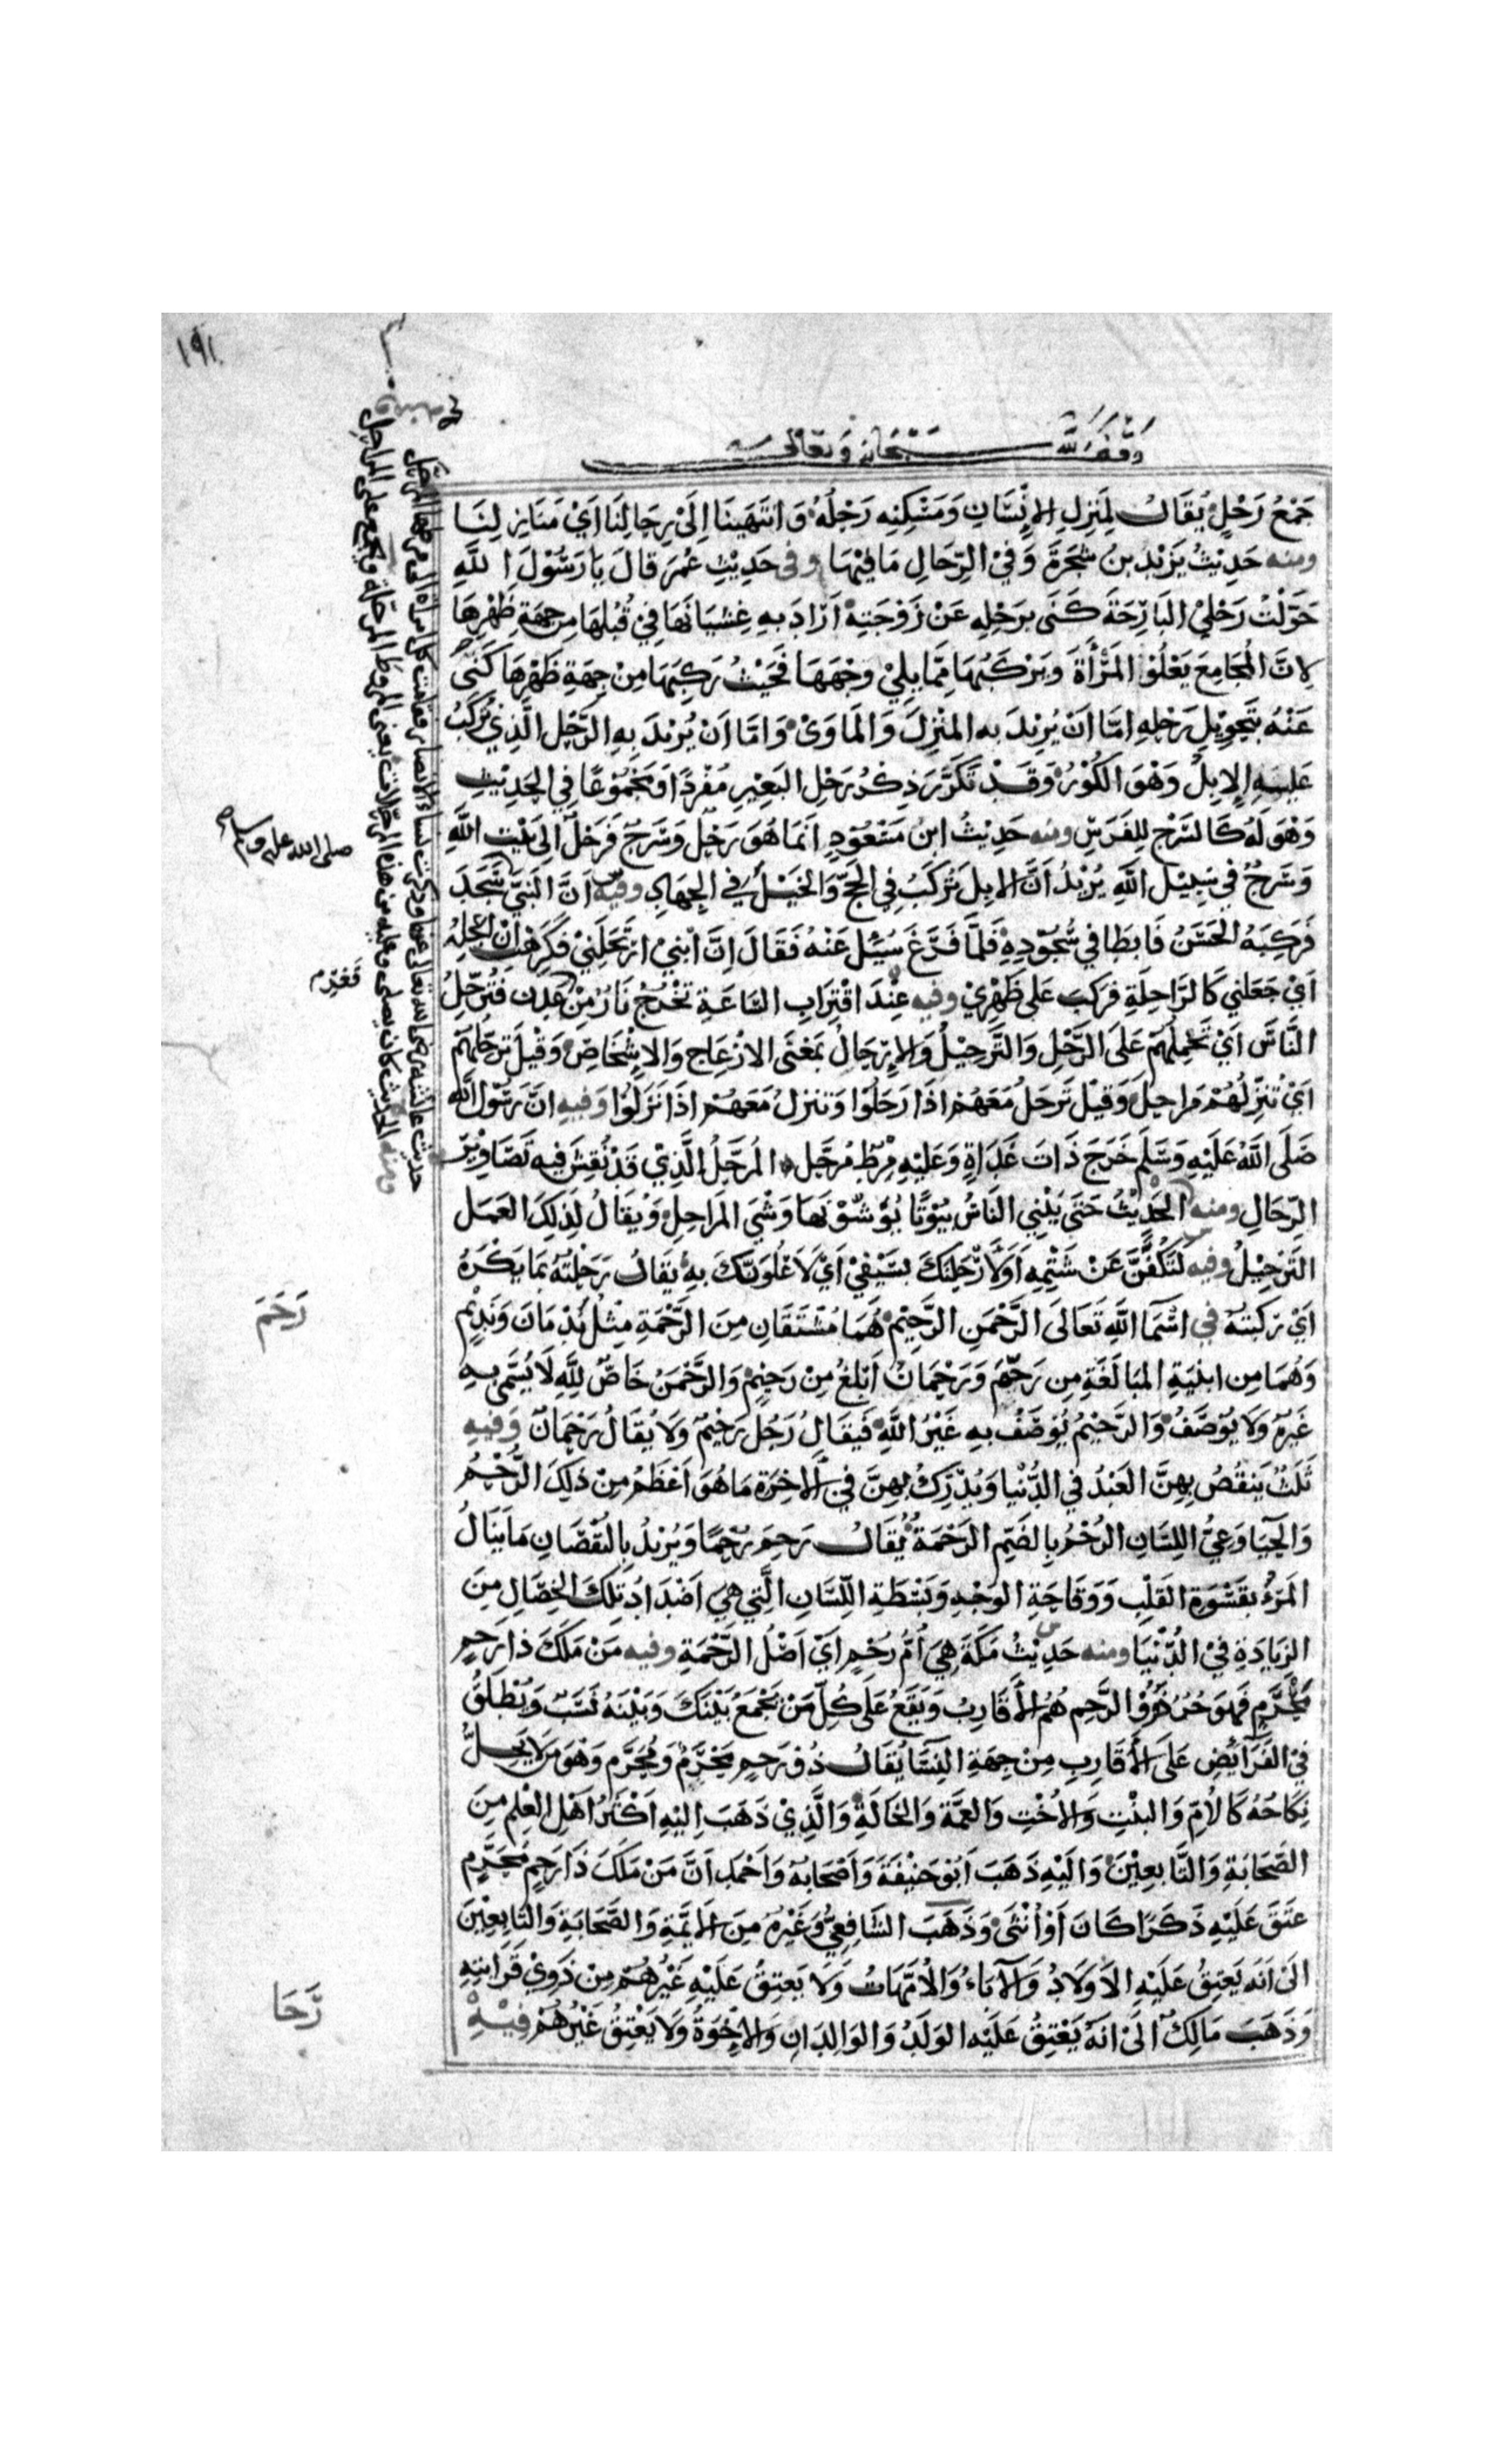 ١٩١
وقف لله سبحانه وتعالى
جَمْعُ رَحْلٍ يُقَالُ لِمَنزِلِ الاِنْسَانِ وَمَسْكِنِهِ رَحْلُهُ وَانتَهَينَا اِلَى رِحَالِنَا اَيْ مَنَازِلِنَا
ومنه حَدِيْثُ يَزِيْدَ بنِ شَجَرَةَ وَفِي الرِّحَالِ مَافِيْهَا وفى حَدِيْثِ عُمَرَ قَالَ يَا رَسُوْلَ اللهِ
حَوَّلْتُ رَحْلِيْ البَارِحَةَ كَنَى بِرَحْلِهِ عَنْ زَوْجَتِهِ اَرَادَ بِهِ غِشْيَانَهَا فِي قُبُلِهَا مِن جِهَةِ ظَهْرِهَا
لِاَنَّ المُجَامِعَ يَعْلُوْ المَرْأَةَ وَيَرْكَبُهَا مِمَّا يَلِيْ وَجْهَهَا فَحَيْثُ رَكِبَهَا مِنْ جِهَةِ ظَهْرِهَا كَنَى
عَنْهُ بِتَحْوِيْلِ رَحْلِهِ اِمَّا اَنْ يُرِيْدَ بِهِ المَنْزِلَ وَالمَاوَى وَاِمَّا اَنْ يُرِيْدَ بِهِ الرَّحْلَ الَّذِي تُرْكَبُ
عَلَيْهِ الاِبِلُ وَهْوَ الكُوْرُ وَقَدْ تَكَرَّرَ ذِكْرُ رَحْلِ البَعِيْرِ مُفْرَدًا وَمَجْمُوْعًا فِي الحَدِيْثِ
وَهْوَ لَهُ كَالسَّرْجِ لِلفَرَسِ ومنه حَدِيْثُ ابنِ مَسْعُوْدٍ اِنَّمَا هُوَ رَحْلٌ وَسَرْجٌ فَرَحْلٌ اِلَى بَيْتِ اللهِ
وَسَرْجٌ فِي سَبِيْلِ اللهِ يُرِيْدُ اَنَّ الاِبِلَ تُرْكَبُ فِي الحَجِّ وَالخَيْلَ فِي الجِهَادِ وفيه اَنَّ النَّبِيَّ سَجَدَ
صلى الله عليه وسلم
فَرَكِبَهُ الحَسَنُ فَابطَا فِي سُجُوْدِهِ فَلَمَّا فَرَغَ سُئِلَ عَنْهُ فَقَالَ اِنَّ ابْنِيْ ارْتَحَلَنِيْ فَكَرِهْتُ اَنْ اُعْجِلَهُ
اَيْ جَعَلَنِي كَالرَّاحِلَةِ فَرَكِبَ عَلَى ظَهْرِيْ وفيه عِنْدَ اقْتِرَابِ السَّاعَةِ تَخْرُجُ نَارٌ مِنْ عَدَن فَتُرَحِّلُ
النَّاسَ اَيْ تَحْمِلُهُمْ عَلَى الرَّحْلِ وَالتَّرْحِيْلُ وَالاِرْحَالُ بِمَعْنَى الاِزْعَاجِ وَالاِشْخَاصِ وَقِيْلَ تُرَحِّلُهُمْ
اَيْ تُنَزِّلُهُمْ مَرَاحِلَ وَقِيْلَ تَرْحَلُ مَعَهُمْ اِذَا رَحَلُوْا وَتَنْزِلُ مَعَهُمْ اِذَا نَزَلُوْا وَفِيهِ اَنَّ رَسُوْلَ اللهِ
صَلَى اللهُ عَلَيْهِ وَسَلَّمَ خَرَجَ ذَاتَ غَدَاةٍ وَعَلَيْهِ مِرْطٌ مُرَحَّل المُرَحَّلُ الَّذِيْ قَدْ نُقِشَ فِيهِ تَصَاوِيْرُ
الرِّحَالِ ومنه الحَدِيْثُ حَتَى يَبْنِي النَّاسُ بُيُوْتًا يُوَشُّوْنَهَا وَشْيَ المَرَاحِلِ وَيُقَالُ لِذَلِكَ العَمَلِ
التَّرْحِيْلُ وفيه لَتَكُفَّنَّ عَنْ شَتْمِهِ اَوْ لَاَرْحَلَنَّكَ بِسَيْفِيْ اَيْ لَاَعْلُوَنَّكَ بِهِ يُقَالُ رَحَلْتُهُ بِمَا يَكْرَهُ
اَيْ رَكِبْتُهُ في اسْمَآ اللهِ تَعَالَى الرَّحْمَنِ الرَّحِيْم هُمَا مُشْتَقَانِ مِنَ الرَّحْمَةِ مِثْلُ نَدْمَانَ وَنَدِيْمٍ
رَحَمَ
وَهُمَا مِن ابنِيَةِ المُبَالَغَةِ مِن رَحِمَ وَرَحْمَانُ اَبْلَغُ مِنْ رَحِيْمٍ وَالرَّحْمَنُ خَاصٌّ لِلهِ لَا يُسَمَّى بِهِ
غَيْرُهُ وَلَا يُوْصَفُ وَالرَّحِيْمُ يُوْصَفُ بِهِ غَيْرُ اللهِ فَيُقَالُ رَجُلٌ رَحِيْمٌ وَلَا يُقَالُ رَحْمَانٌ وَفِيهِ
ثَلَثٌ يَنقُصُ بِهِنَّ العَبْدُ فِي الدُّنْيَا وَيُدْرِكُ بِهِنَّ فِي الاٰخِرَةِ مَا هُوَ اَعْظَمُ مِنْ ذَلِكَ الرُّحْمُ
وَالحَيَا وَعِيُّ اللِسَانِ الرُحْمُ بِالضَمِّ الرَحْمَةُ يُقَالُ رَحِمَ رُحْمًا وَيُرِيْدُ بِالنُّقْصَانِ مَا يَنَالُ
المَرْءُ بِقَسْوَةِ القَلْبِ وَوَقَاحَةِ الوَجْهِ وَبَسْطَةِ اللِّسَانِ الَّتِي هِيَ اَضْدَادُ تِلكَ الخِصَالِ مِنَ
الزِيَادَةِ فِي الدُّنْيَا ومنه حَدِيْثُ مَكَةَ هِيَ اُمُّ رُحْمٍ اَيْ اَصْلُ الرَّحْمَةِ وفيه مَنْ مَلَكَ ذَا رَحِمٍ
مَحْرَمٍ فَهوَ حُرٌّ ذُوْ الرَّحِمِ هُمُ الاَقَارِبُ وَيَقَعُ عَلَى كُلِّ مَنْ يَجْمَعُ بَيْنَكَ وَبَيْنَهُ نَسَبٌ وَيُطْلَقُ
فِي الفَرَآئِضِ عَلَى الاَقَارِبِ مِنْ جِهَةِ النِسَآ يُقَالُ ذُو رَحِمٍ مَحْرَمٌ وَمُحَرَّم وَهْوَ مَن لَا يَحِلُّ
نِكَاحُهُ كَالاُمِّ وَالبِنْتِ وَالاُخْتِ وَالعَمَّةِ وَالخَالَةِ وَالَّذِيْ ذَهَبَ اِلَيْهِ اَكْثَرُ اَهْلِ العِلْمِ مِنَ
الصَّحَابَةِ وَالتَّابِعِيْنَ وَاِلَيْهِ ذَهَبَ اَبُوْ حَنِيْفَةَ وَاَصْحَابُهُ وَاَحْمَدُ اَنَّ مَنْ مَلَكَ ذَا رَحِمٍ مَحْرَمٍ
عَتَقَ عَلَيْهِ ذَكَرًا كَانَ اَوْ اُنْثَى وَذَهَبَ الشَّافِعِيُّ وَغَيْرُهُ مِنَ الاَئِمَّةِ وَالصَّحَابَةِ وَالتَّابِعِيْنَ
اِلَى اَنَّهُ يَعْتِقُ عَلَيْهِ الاَوْلَادُ وَالاٰبَاءُ وَالاُمَّهَاتُ وَلَا يَعْتِقُ عَلَيْهِ غَيْرُهُمْ مِنْ ذَوِيْ قَرَابَتِهِ
رَّحَا
وَذَهَبَ مَالِكٌ اِلَى اَنَّهُ يَعْتِقُ عَلَيْهِ الوَلَدُ وَالوَالِدَانِ وَالاِخْوَةُ وَلَا يَعْتِقُ غَيْرُهُمْ فِيْهِ
حديث عائشة رضى الله تعالى عنها وذكرت نساء الانصار فقامت كل امراة الى مرطها المرحل
ومنه الحديث كان يصلى وعليه من هذه المرحلات يعنى المروط المرحلة وتجمع على المراحل